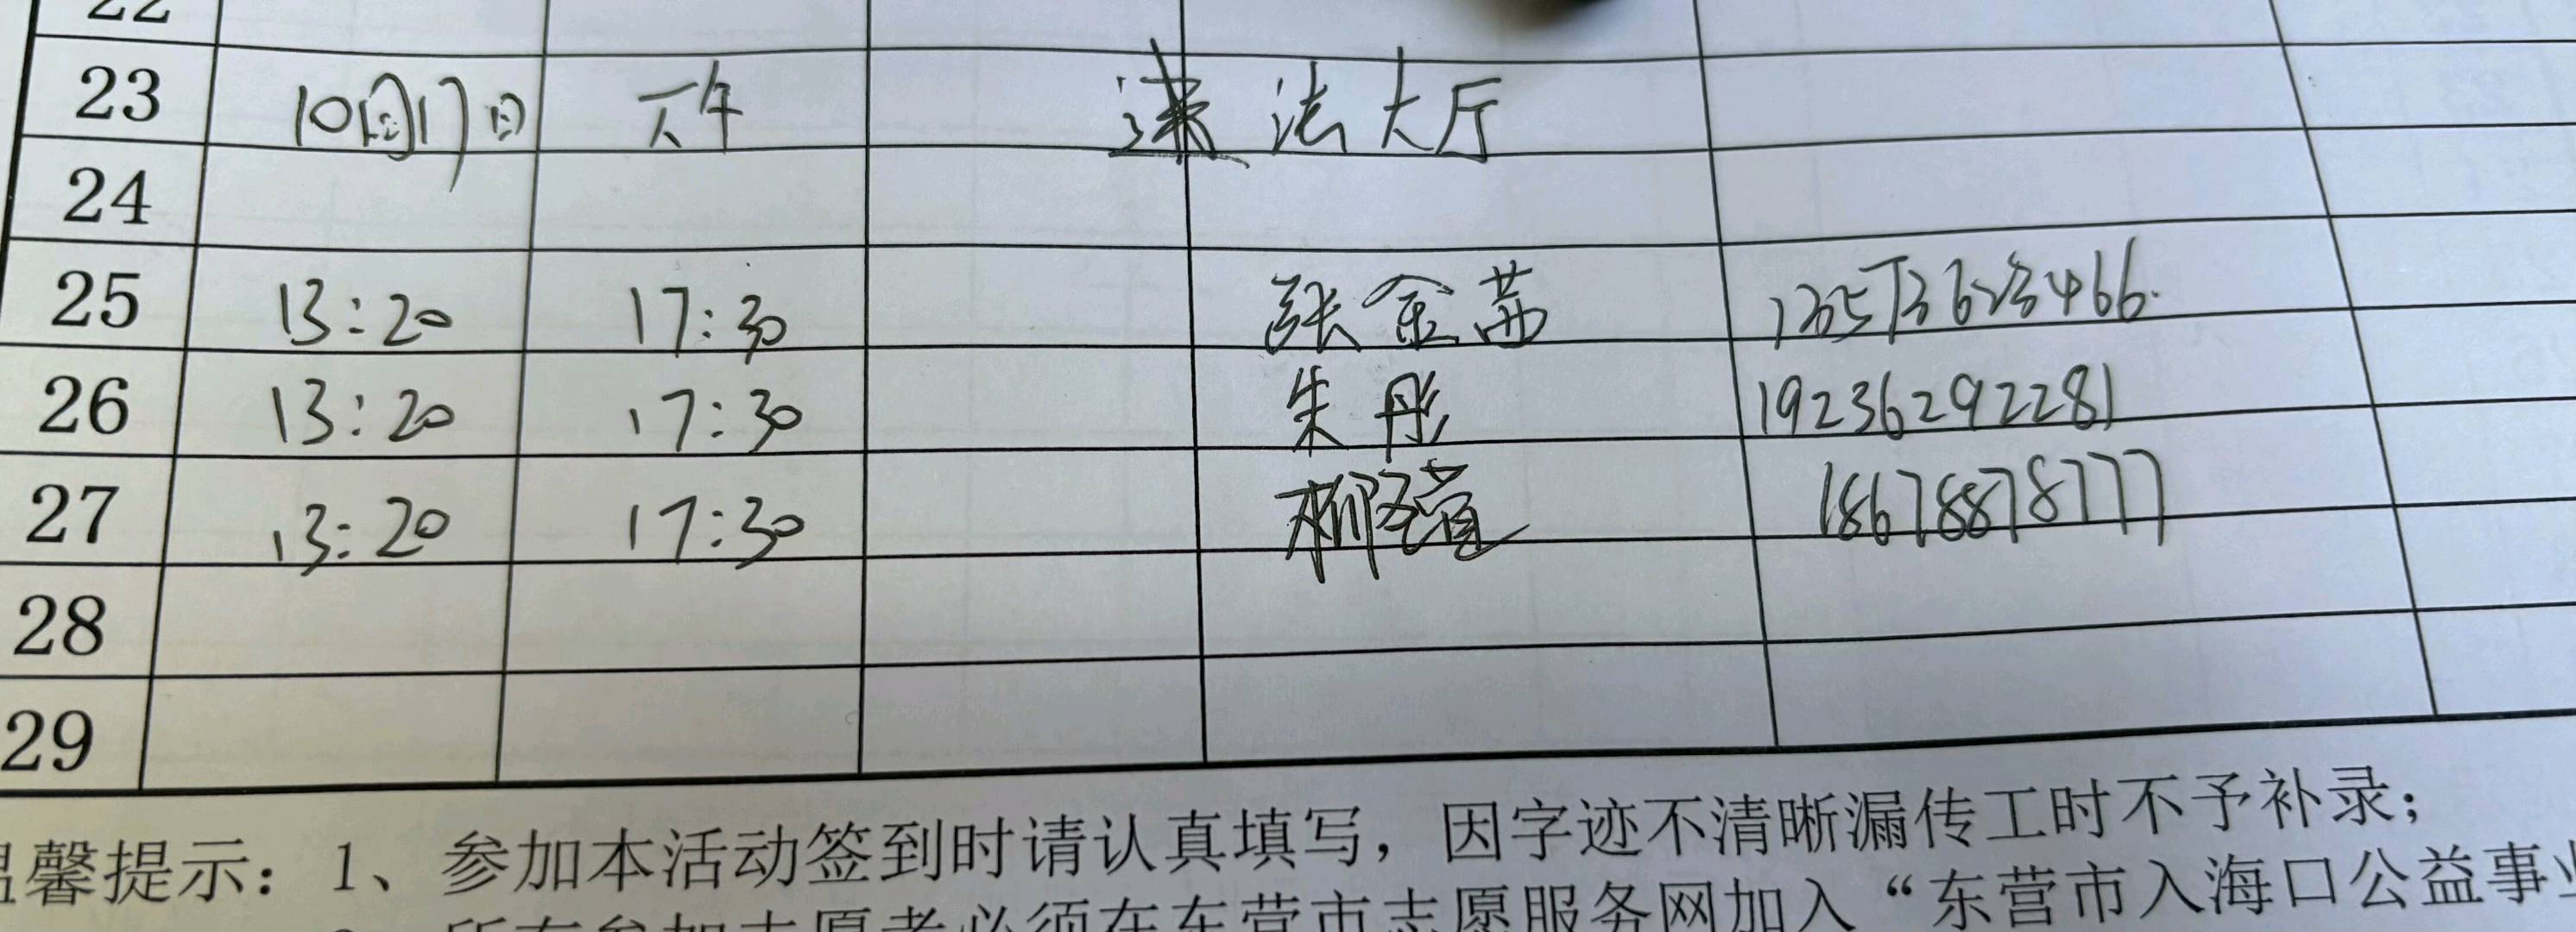 22
23 10月17日 下午 速法大厅
24
25 13:20 17:30 张金茜 13573623466
26 13:20 17:30 朱彤 19236292281
27 13:20 17:30 18678878777
28
29
温馨提示：1、参加本活动签到时请认真填写，因字迹不清晰漏传工时不予补录；
所有参加志愿者必须在东营市志愿服务网加入“东营市入海口公益事业